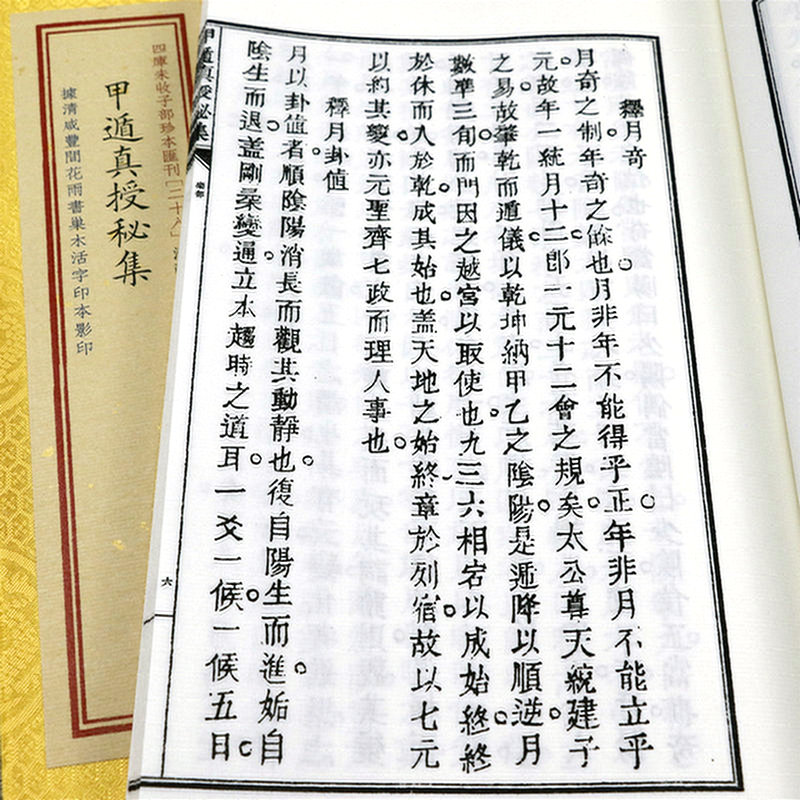 釋月奇
月奇之制年奇之餘也月非年不能得乎正年非月不能立乎
元故年一統月十二郎一元十二會之規矣太公尊天統建子
之易故肇乾而遁儀以乾坤納甲乙之陰陽是遁降以順逆月
數準三旬而門因之越宮以取使也九三六相宕以成始終終
於休而入於乾成其始也盖天地之始終章於列宿故以七元
以約其變亦元聖齊七政而理人事也
釋月卦值
月以卦值者順陰陽消長而觀其動靜也復自陽生而進姤自
陰生而退盖剛柔變通立本趨時之道耳一爻一候一候五日
甲遁真授秘集
六
四庫未收子部珍本匯刊[二十八]
甲遁真授秘集
據清咸豐間花雨書巢木活字印本影印